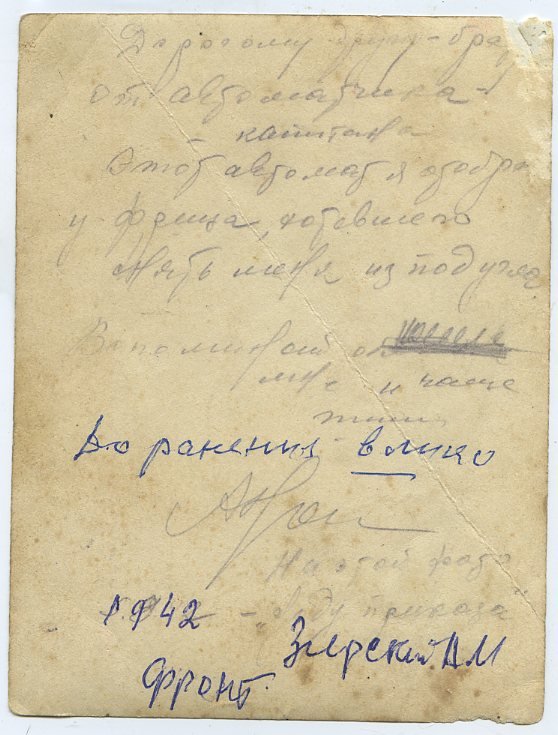 Дорогому другу-бра
от автоматчика-
- капитана
Этот автомат я отобрал
у фрица, хотевшего
снять меня из под угла
Вспоминай о
мне и чаще
пиши
До ранения в лицо
На этой фото
1942 - "Жду приказа"
Згерский А М
Фронт.